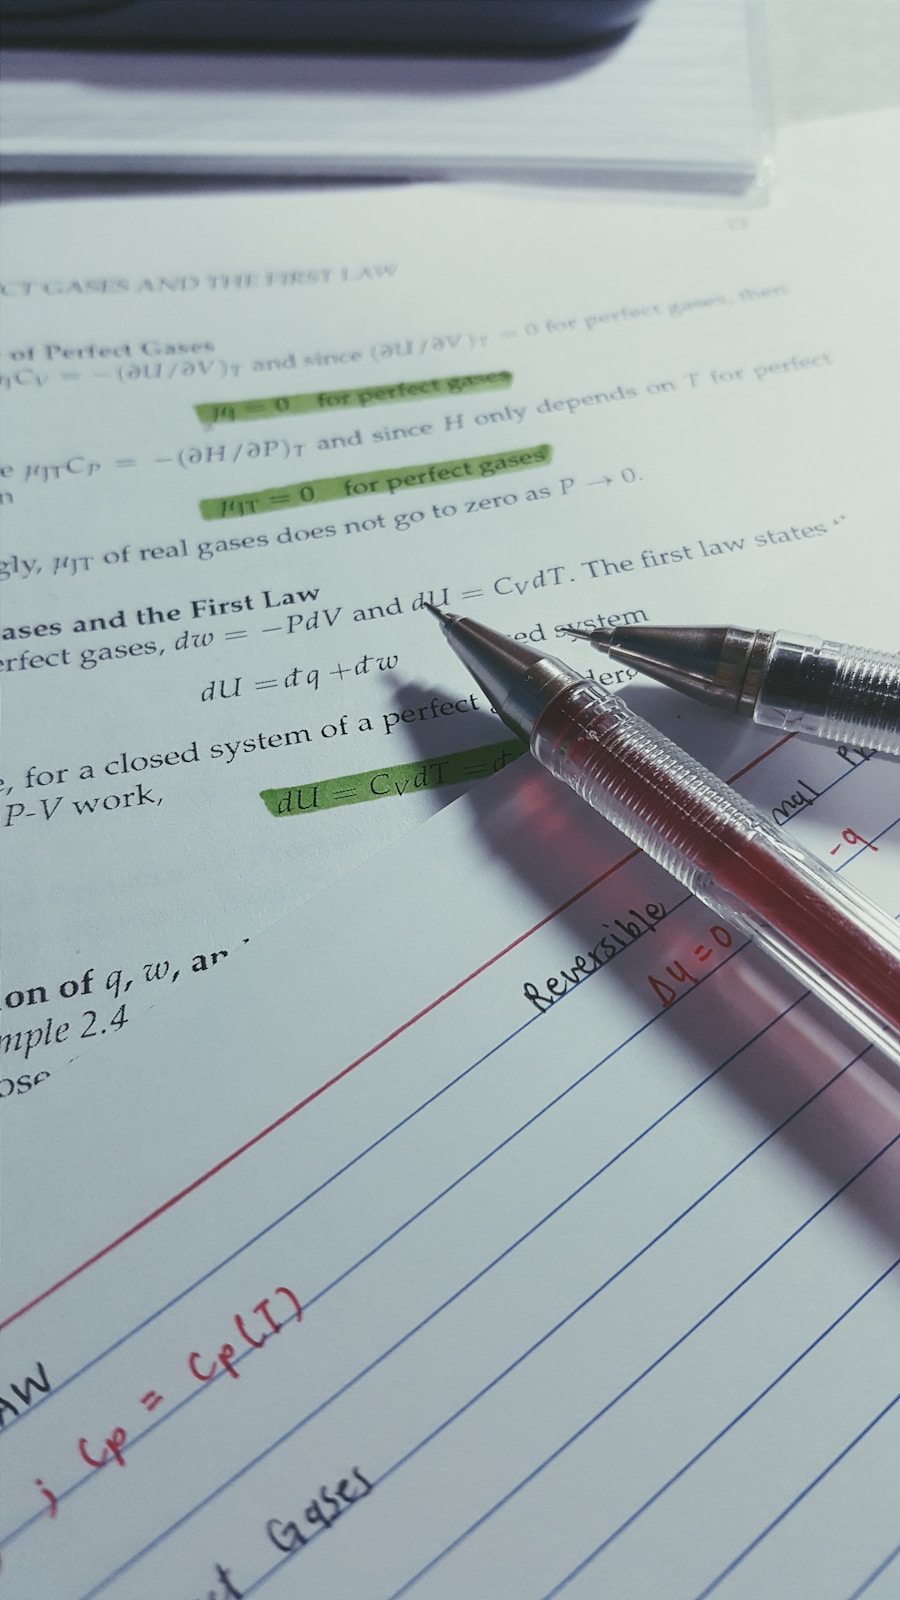 CT GASES AND THE FIRST LAW
of Perfect Gases
JCV = −(∂U/∂V)T and since (∂U/∂V)T = 0 for perfect gases, then
μJ = 0 for perfect gases
e μJTCP = −(∂H/∂P)T and since H only depends on T for perfect
n
μJT = 0 for perfect gases
gly, μJT of real gases does not go to zero as P → 0.
ases and the First Law
erfect gases, dw = −PdV and dU = CVdT. The first law states
dU = đq + đw
ed system
, for a closed system of a perfect
P-V work,
dU = CVdT = đ
on of q, w, an
mple 2.4
ose
Reversible
ΔU = 0
-q
AW
; Cp = Cp(T)
ct Gases